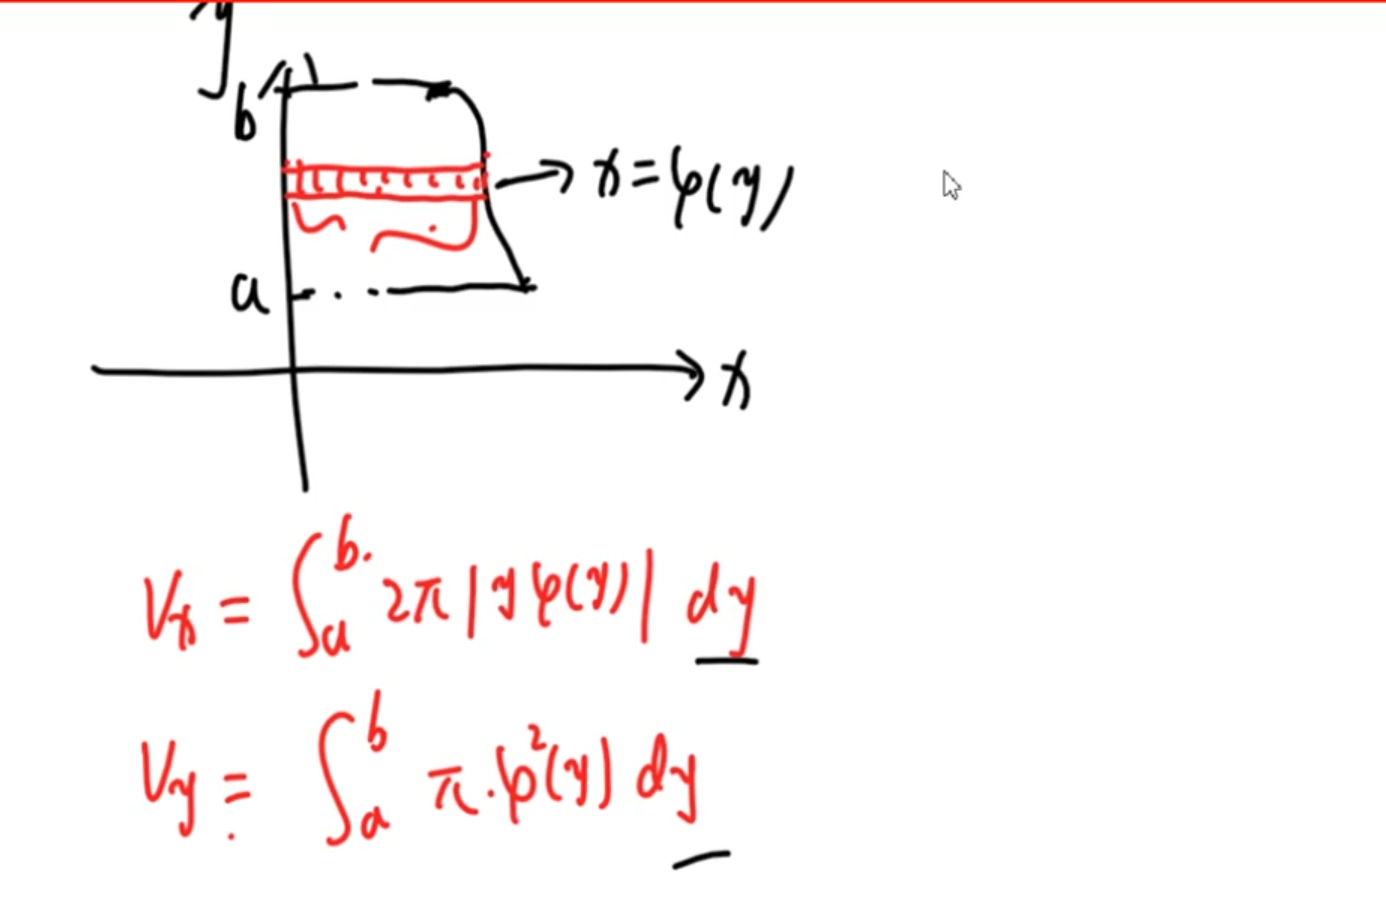 y
b
x = φ(y)
a
x
Vx = ∫_a^b 2π |y φ(y)| dy
Vy = ∫_a^b π · φ²(y) dy